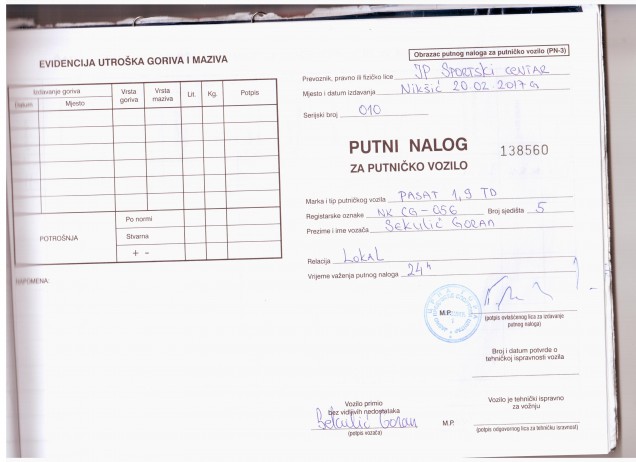 EVIDENCIJA UTROŠKA GORIVA I MAZIVA
Izdavanje goriva
Datum
Mjesto
Vrsta goriva
Vrsta maziva
Lit.
Kg.
Potpis
POTROŠNJA
Po normi
Stvarna
+ -
NAPOMENA:
Obrazac putnog naloga za putničko vozilo (PN-3)
Prevoznik, pravno ili fizičko lice JP SPORTSKI CENTAR
Mjesto i datum izdavanja Nikšić 20.02.2017 g
Serijski broj 010
PUTNI NALOG
ZA PUTNIČKO VOZILO
138560
Marka i tip putničkog vozila PASAT 1,9 TD
Registarske oznake NK CG-056 Broj sjedišta 5
Prezime i ime vozača Sekulić Goran
Relacija LOKAL
Vrijeme važenja putnog naloga 24h
M.P.
(potpis ovlašćenog lica za izdavanje
putnog naloga)
Broj i datum potvrde o
tehničkoj ispravnosti vozila
Vozilo primio
bez vidljivih nedostataka
Sekulić Goran
(potpis vozača)
M.P.
Vozilo je tehnički ispravno
za vožnju
(potpis odgovornog lica za tehničku isravnost)